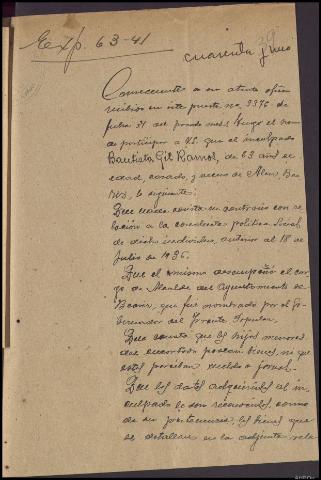 Exp. 63-41
39
cuarenta y uno
Consecuente a su atento oficio
recibido en este puesto no. 3376 de
fecha 31 del pasado mes, tengo el honor
de participar a V.S. que el inculpado
Bautista Gil Ramol, de 63 años de
edad, casado, y vecino de
lo siguiente:
Que nada consta en contrario con re-
lación a la conducta político Social
de dicho individuo, anterior al 18 de
Julio de 1936.
Que el mismo desempeñó el car-
go de Alcalde del Ayuntamiento de
que fue nombrado por el Go-
bernador del Frente Popular.
Que consta que los hijos menores
que encontrados posean bienes, ni que
estos perciban sueldo o jornal.
Que los datos adquiridos al in-
culpado le son reconocidos, como
de su pertenencia, los bienes que
se detallan en la adjunta rela